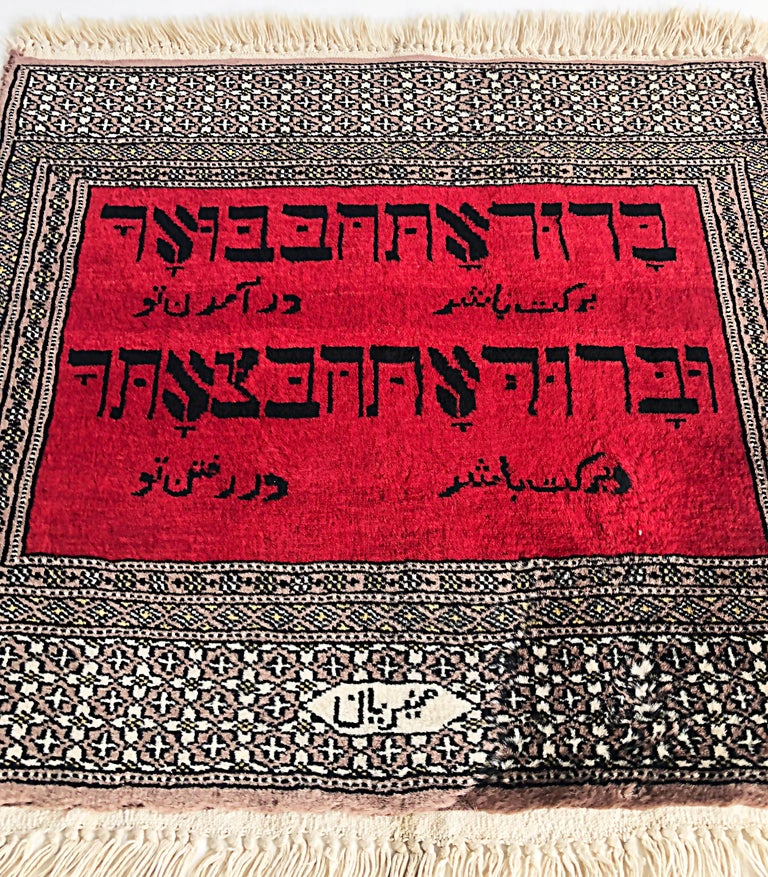 בָּרוּךָ אָתָּה בּבּוּאָךָ
برکت باشد در آمدن تو
וּבָּרוּךָ אָתָּה בּצּאָתךָ
وبرکت باشد در رفتن تو